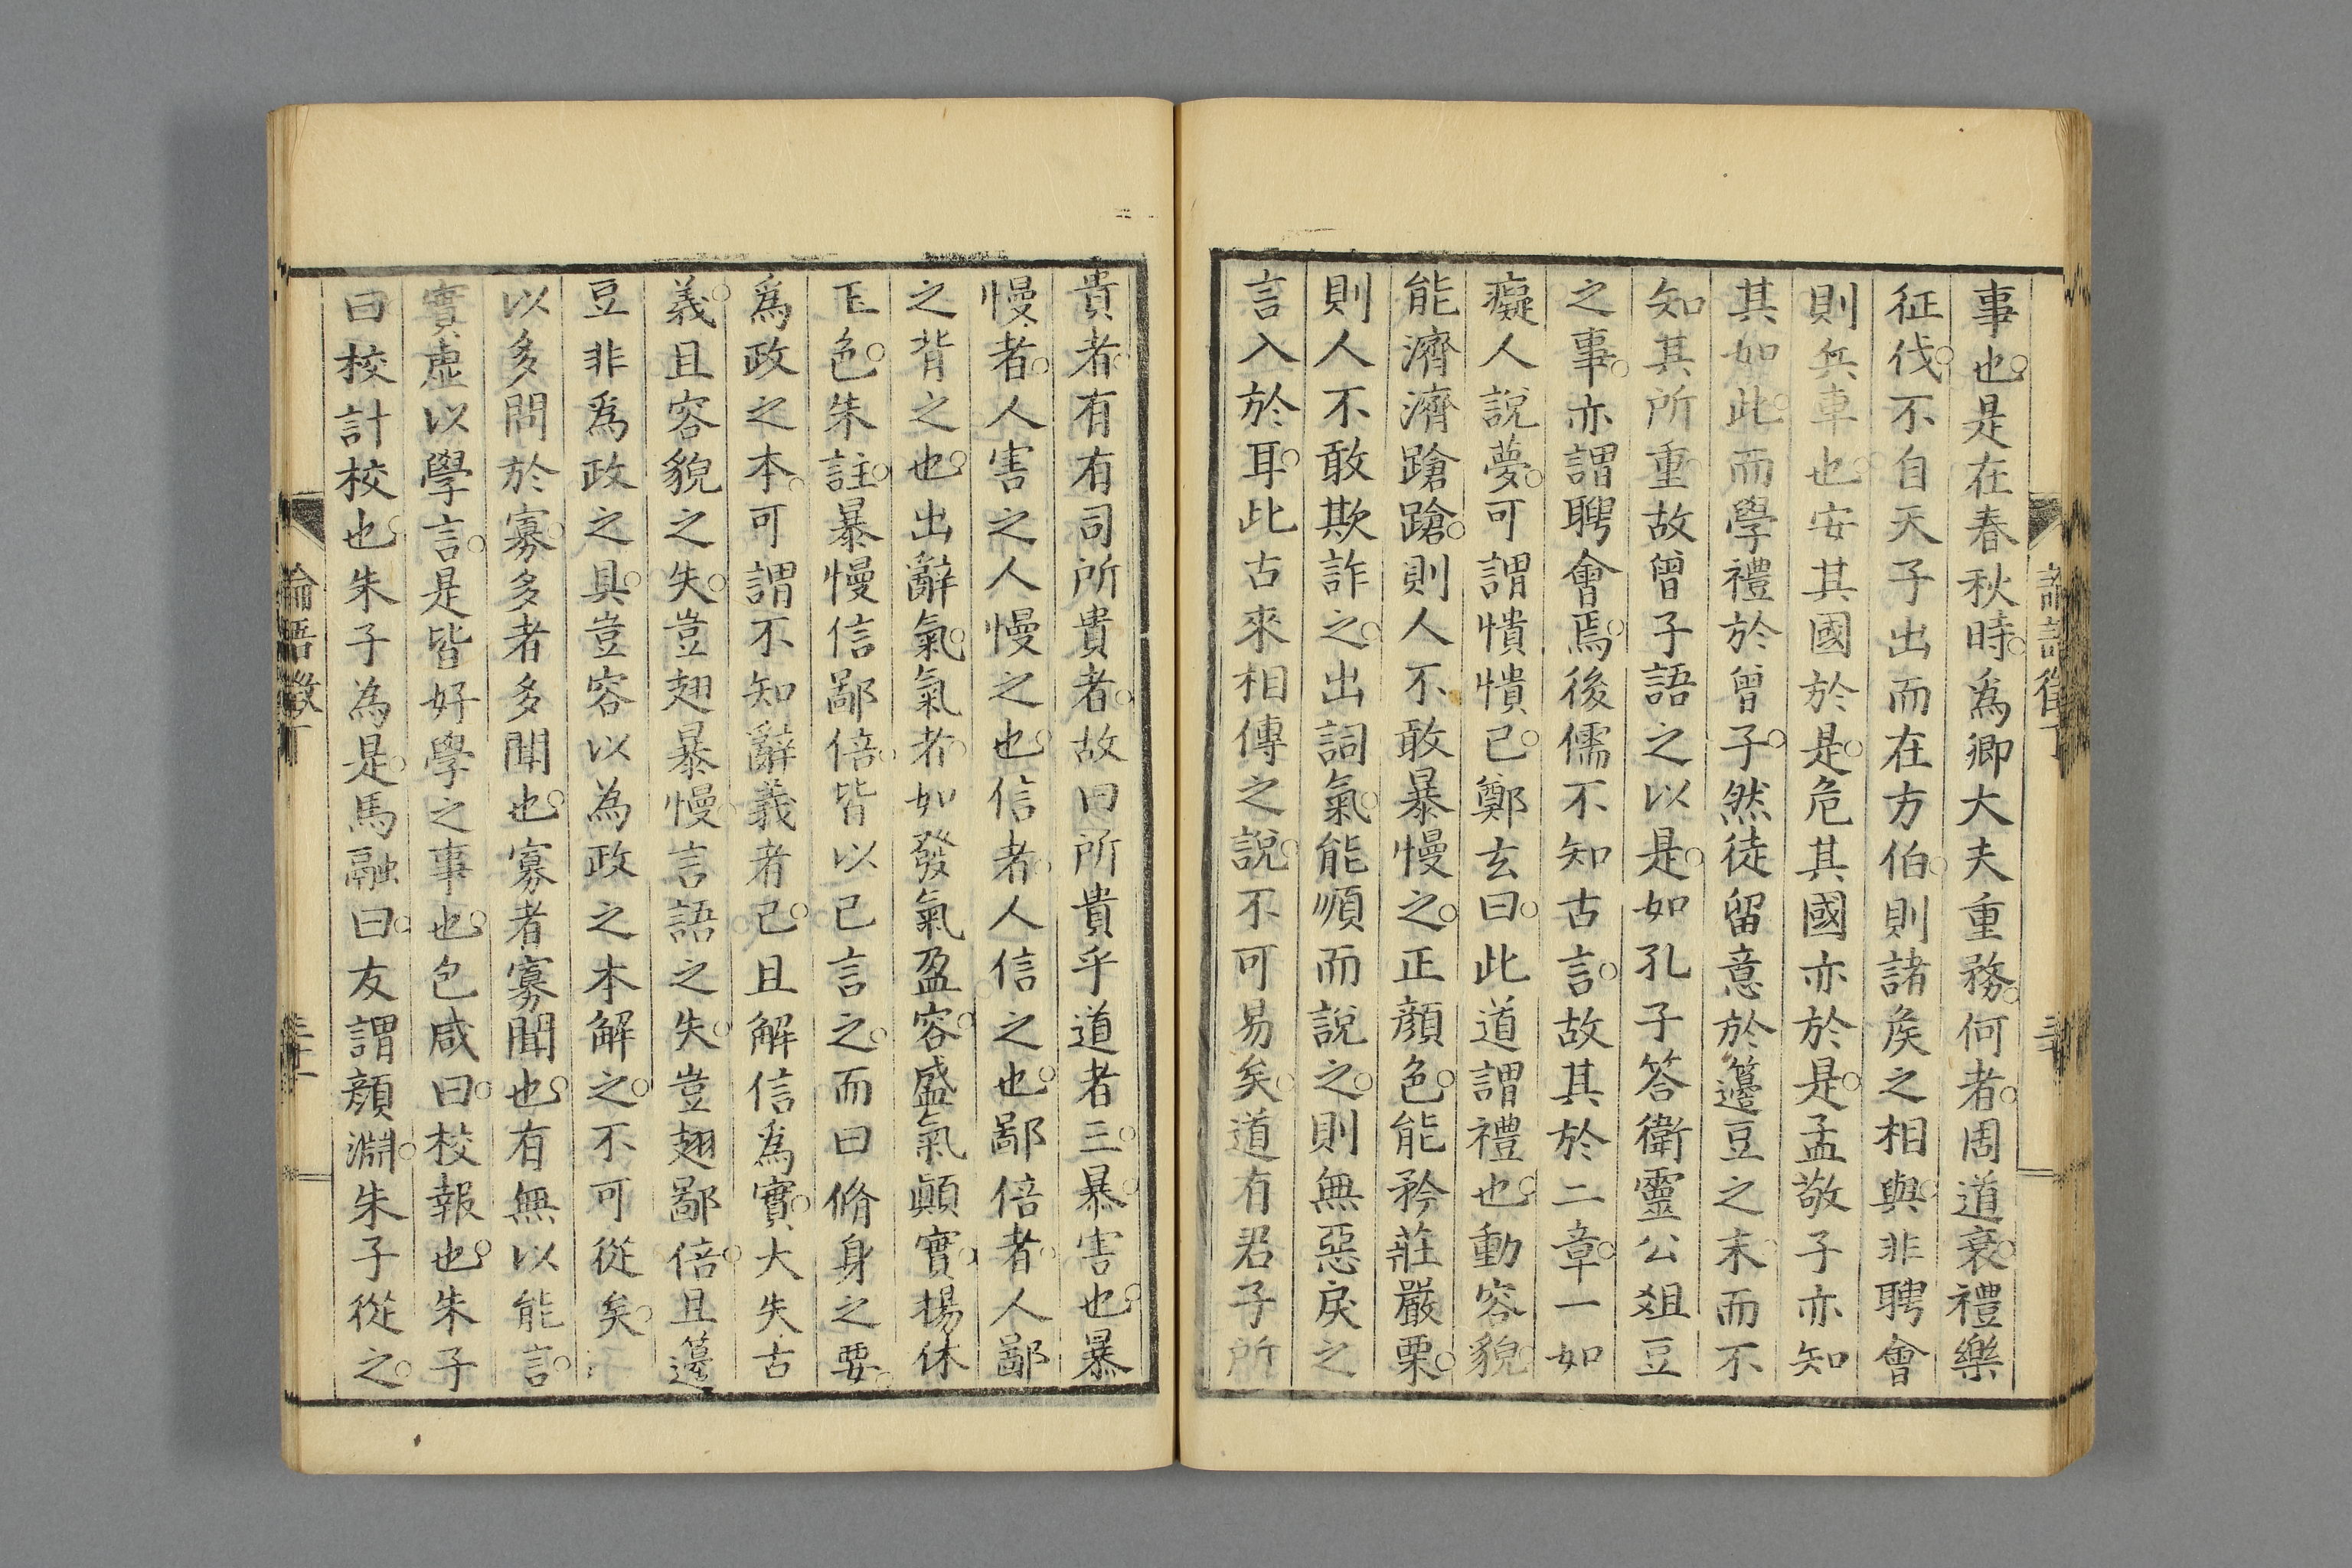 事也是在春秋時爲卿大夫重務何者周道衰禮樂
征伐不自天子出而在方伯則諸矦之相與非聘會
則兵車也安其國於是危其國亦於是孟敬子亦知
其如此而學禮於曾子然徒留意於籩豆之末而不
知其所重故曾子語之以是如孔子答衛靈公爼豆
之事亦謂聘會焉後儒不知古言故其於二章一如
癡人說夢可謂憒憒已鄭玄曰此道謂禮也動容貌
能濟濟蹌蹌則人不敢暴慢之正顔色能矜莊嚴栗
則人不敢欺詐之出詞氣能順而說之則無惡戾之
言入於耳此古來相傳之說不可易矣道有君子所
貴者有有司所貴者故曰所貴乎道者三暴害也暴
慢者人害之人慢之也信者人信之也鄙倍者人鄙
之背之也出辭氣氣者如發氣盈容盛氣顚實揚休
玉色朱註暴慢信鄙倍皆以己言之而曰脩身之要
爲政之本可謂不知辭義者已且解信爲實大失古
義且容貌之失豈翅暴慢言語之失豈翅鄙倍且籩
豆非爲政之具豈容以為政之本解之不可從矣
以多問於寡多者多聞也寡者寡聞也有無以能言
實虛以學言是皆好學之事也包咸曰校報也朱子
曰校計校也朱子為是馬融曰友謂顔淵朱子從之
論語徵丁